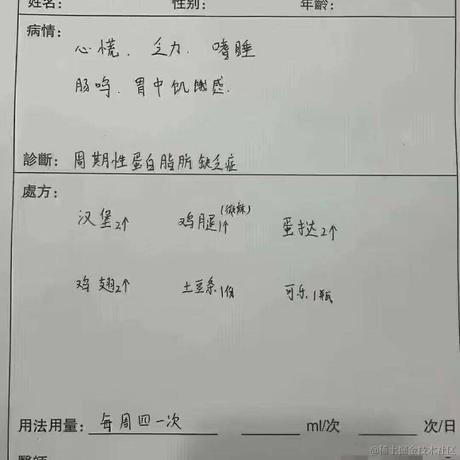 姓名: 性别: 年龄:
病情:
心慌. 乏力. 嗜睡
肠鸣. 胃中饥饿感.
診斷: 周期性蛋白脂肪缺乏症
處方:
(微辣)
汉堡2个 鸡腿1个 蛋挞2个
鸡翅2个 土豆条1份 可乐1瓶
用法用量: 每周四一次 ml/次 次/日
醫師
@稀土掘金技术社区